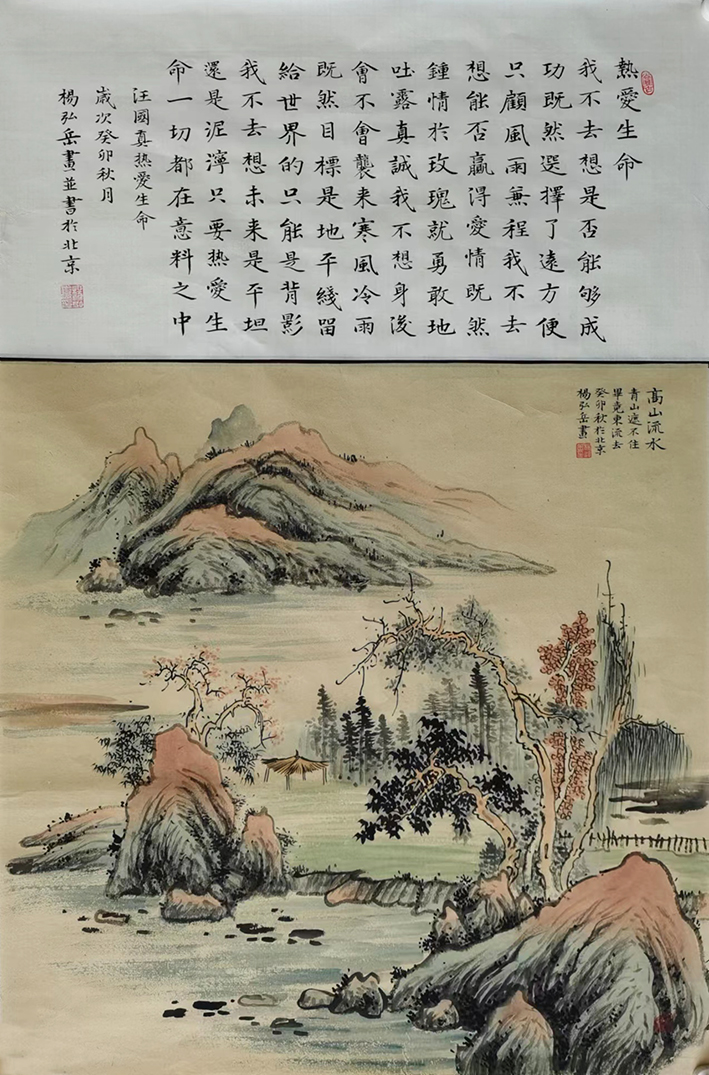 熱愛生命
我不去想是否能够成
功既然選擇了遠方便
只顧風雨兼程我不去
想能否贏得愛情既然
鍾情於玫瑰就勇敢地
吐露真誠我不想身後
會不會襲来寒風冷雨
既然目標是地平綫留
給世界的只能是背影
我不去想未来是平坦
還是泥濘只要热愛生
命一切都在意料之中
汪國真热愛生命
歲次癸卯秋月
楊弘岳畫並書於北京
高山流水
青山遮不住
畢竟東流去
癸卯秋於北京
楊弘岳畫